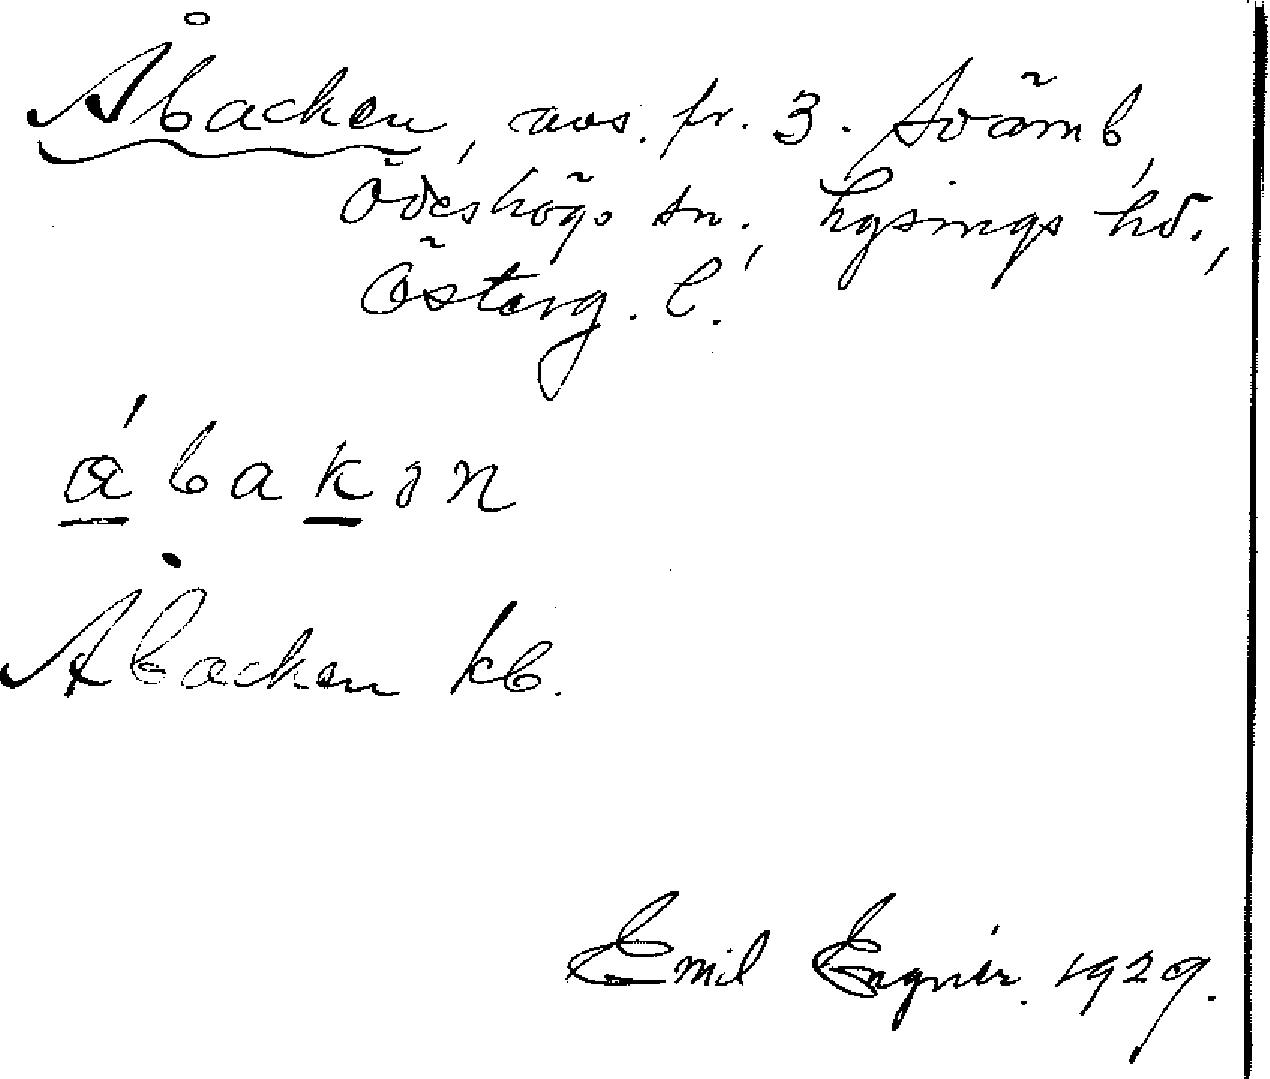 Åbacken, avs. fr. 3. Svämb,
Ödeshögs sn., Lysings hd.,
Österg. l.
åbakən
Åbacken kb.
Emil Egnér. 1929.